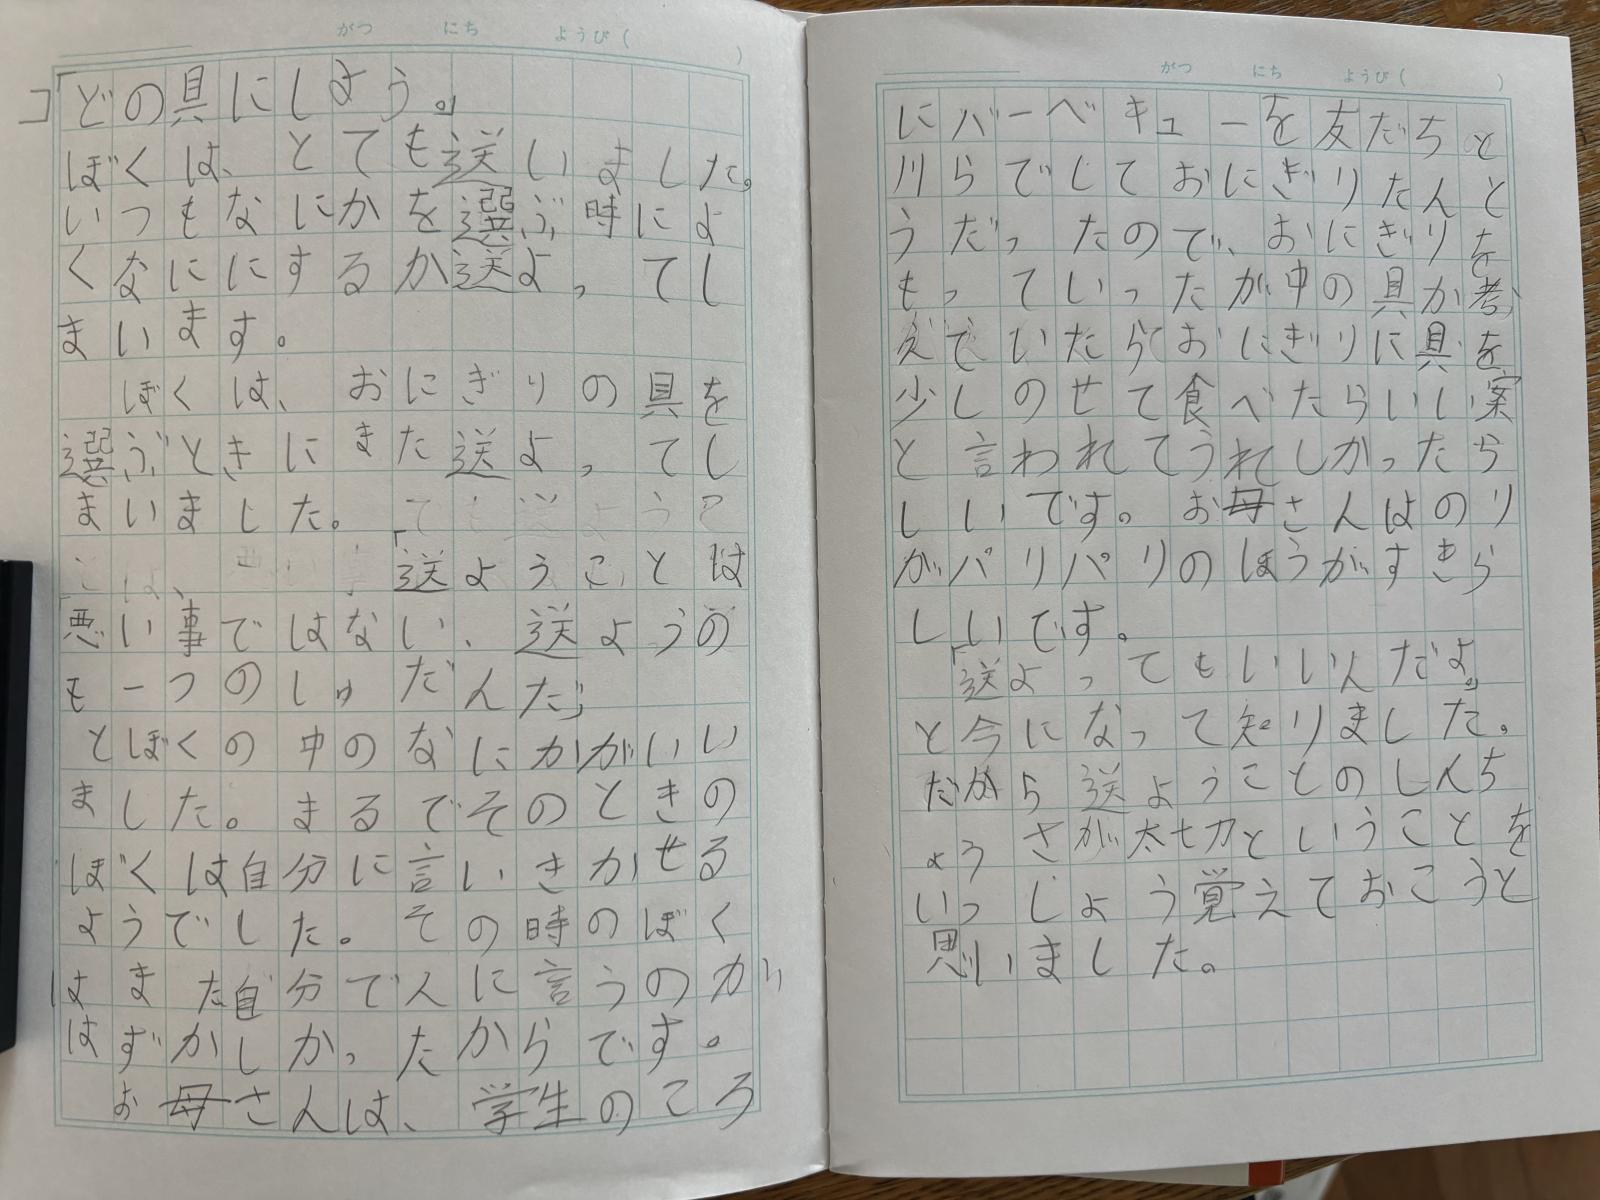 がつ　にち　ようび（　）
「どの具にしよう。」
ぼくは、とても送いました。
いつもなにかを選ぶ時によ
くなににするか送よってし
まいます。
ぼくは、おにぎりの具を
選ぶときにまた送よってし
まいました。
「送ようことは
悪い事ではない、送ようの
も一つのしゅだんだ」
とぼくの中のなにかがいい
ました。まるでそのときの
ぼくは自分に言いきかせる
ようでした。その時のぼく
はまた自分で人に言うのが
はずかしかったからです。
お母さんは、学生のころ
がつ　にち　ようび（　）
にバーベキューを友だちと
川らでしておにぎりたんと
うだったので、おにぎりを
もっていったが中の具か考
えでいたらおにぎりに具を
少しのせて食べたらいい案
と言われてうれしかったら
しいです。お母さんはのり
がパリパリのほうがすきら
しいです。
「送よってもいいんだよ。」
と今になって知りました。
だから送ようことのしんち
ょうさが大切ということを
いっしょう覚えておこうと
思いました。